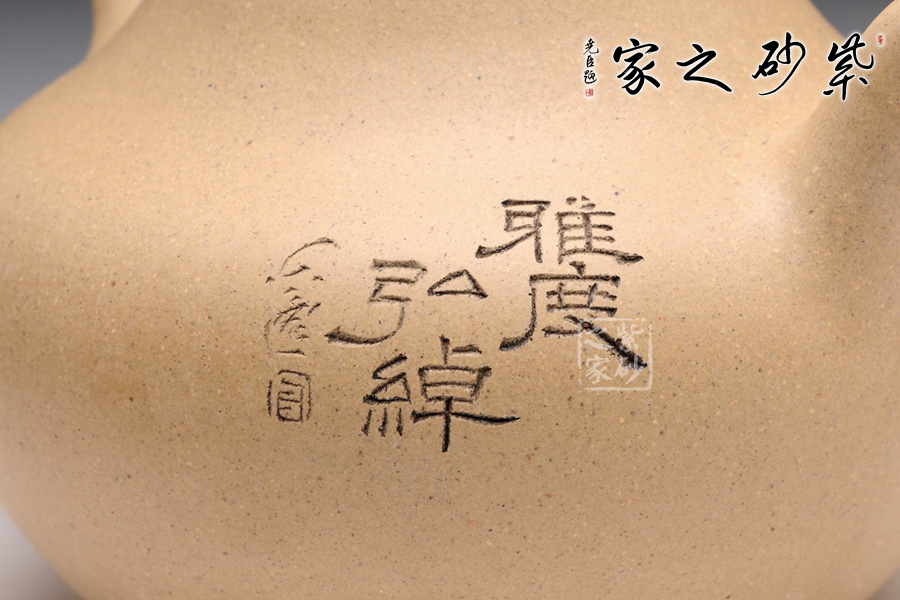 紫砂之家
尧臣题
雅度
弘綽
紫砂
之家